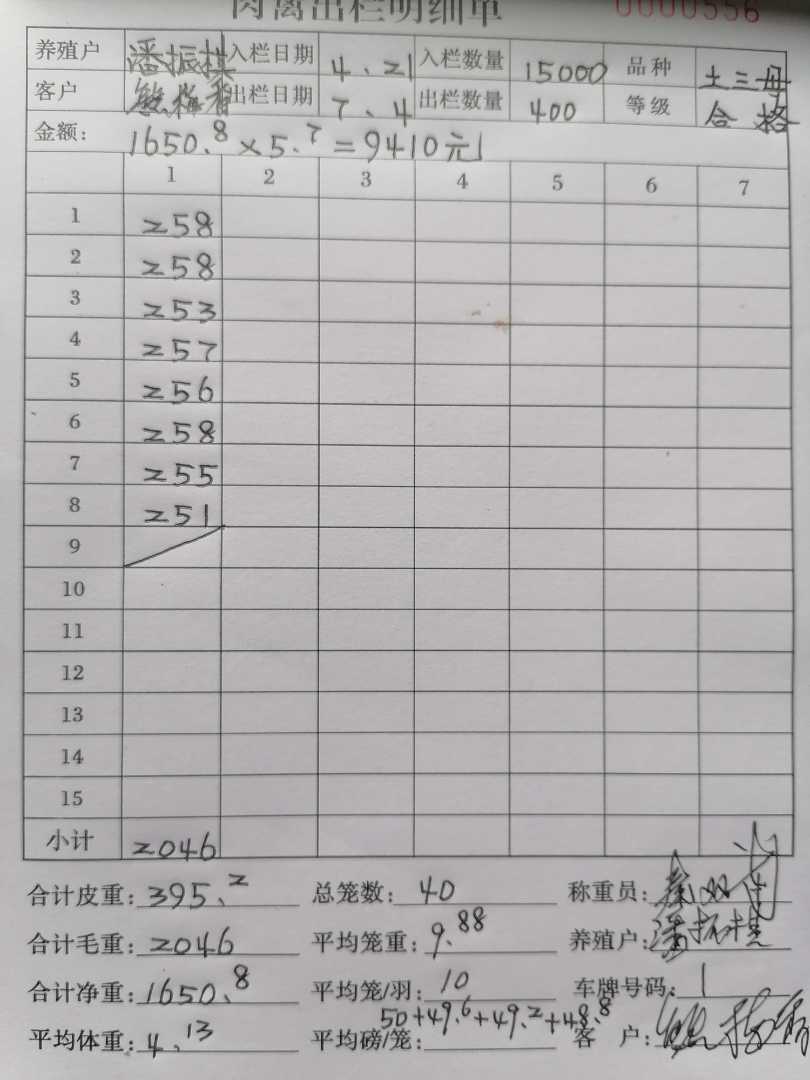 肉禽出栏明细单 0000556
养殖户 潘振棋 入栏日期 4.21 入栏数量 15000 品种 土三母
客户 出栏日期 7.4 出栏数量 400 等级 合格
金额: 1650.8×5.7=9410元
1 2 3 4 5 6 7
1 258
2 258
3 253
4 257
5 256
6 258
7 255
8 251
9
10
11
12
13
14
15
小计 2046
合计皮重: 395.2 总笼数: 40 称重员:
合计毛重: 2046 平均笼重: 9.88 养殖户: 潘振棋
合计净重: 1650.8 平均笼/羽: 10 车牌号码: 1
平均体重: 4.13 平均磅/笼: 50+49.6+49.2+48.8 客 户: